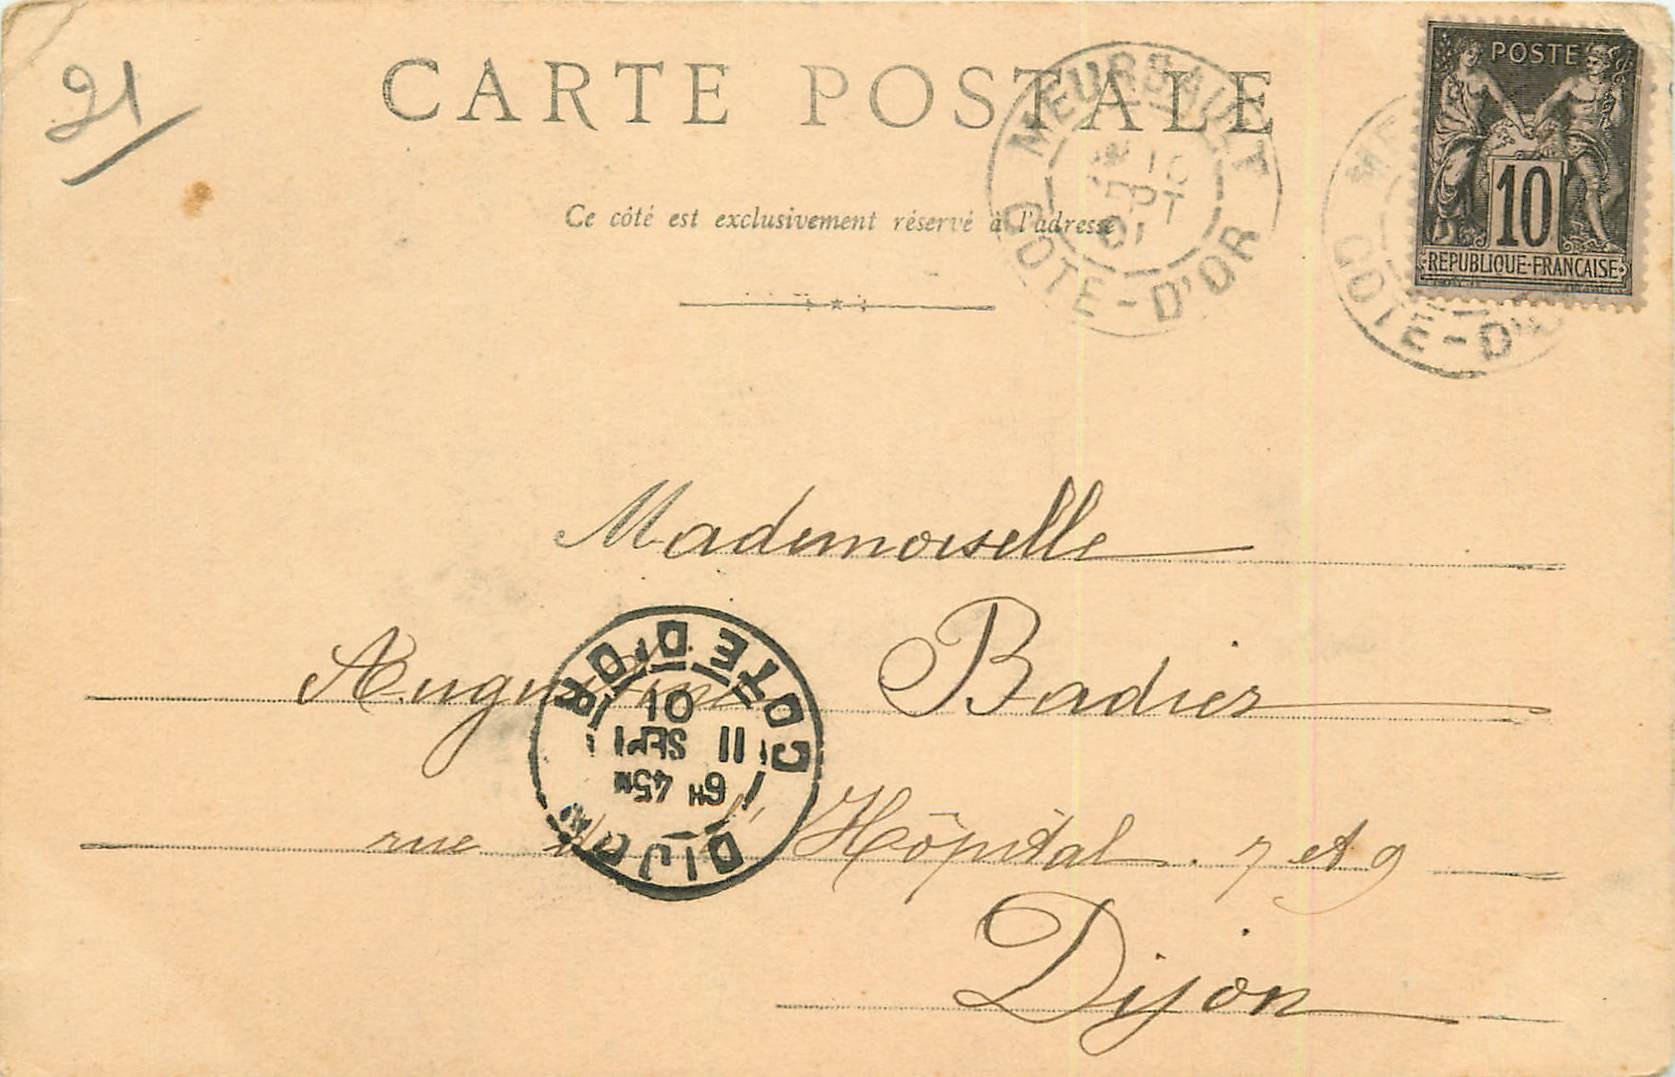 21
CARTE POSTALE
Ce côté est exclusivement réservé à l'adresse
MEURSAULT
10
SEPT
01
COTE-D'OR
POSTE
10
REPUBLIQUE-FRANCAISE
COTE-D'
Mademoiselle
Augustine Badier
rue de l'Hôpital. 7 et 9
Dijon
DIJON
6H 45M
11 SEPT
01
COTE D'OR